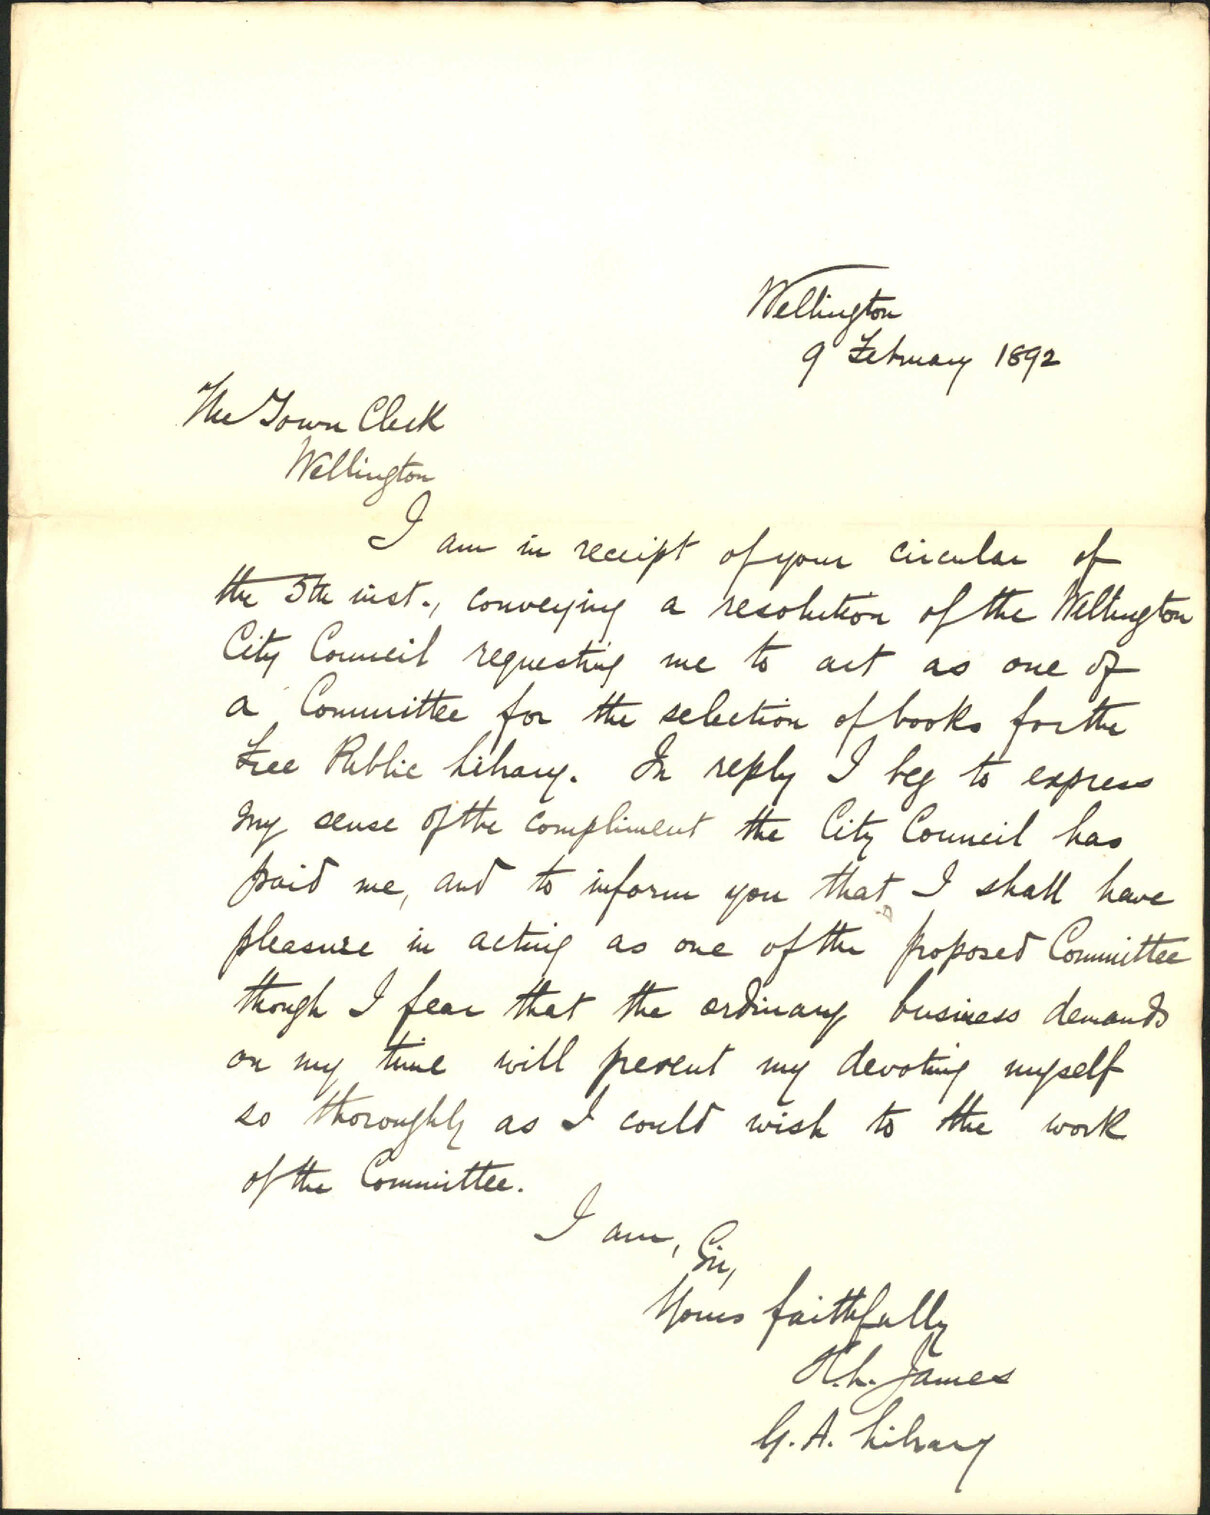 Wellington
9 February 1892
The Town Clerk
Wellington
I am in receipt of your circular of
the 5th inst., conveying a resolution of the Wellington
City Council requesting me to act as one of
a Committee for the selection of books for the
Free Public Library. In reply I beg to express
my sense of the compliment the City Council has
paid me, and to inform you that I shall have
pleasure in acting as one of the proposed Committee
though I fear that the ordinary business demands
on my time will prevent my devoting myself
so thoroughly as I could wish to the work
of the Committee.
I am, Sir,
Yours faithfully
H.L. James
G.A. Library